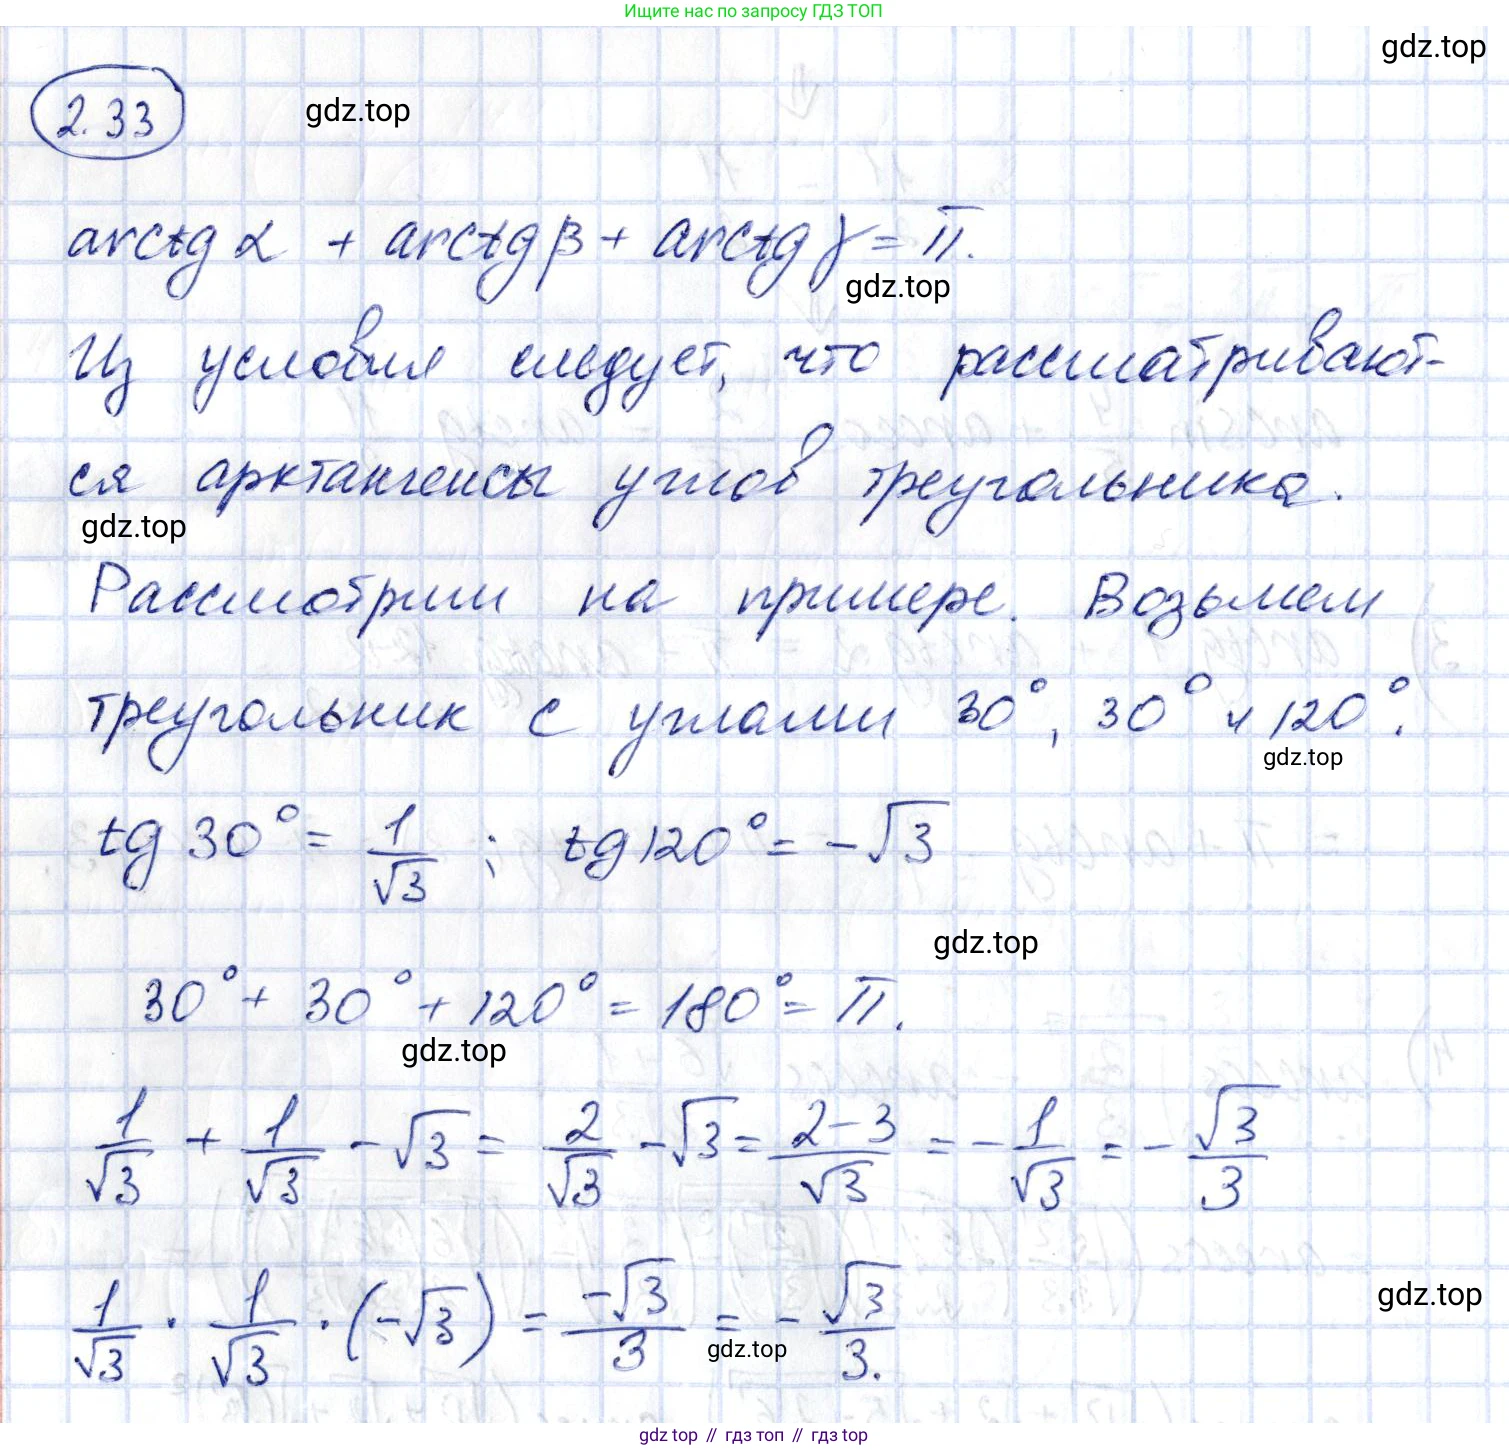 Ищите нас по запросу ГДЗ ТОП
gdz.top
2.33
gdz.top
arctg α + arctg β + arctg γ = π.
gdz.top
Из условия следует, что рассматривают-
ся арктангенсы углов треугольника.
gdz.top
Рассмотрим на примере. Возьмем
треугольник с углами 30°, 30° и 120°.
gdz.top
tg 30° = 1/√3 ; tg 120° = -√3
gdz.top
30° + 30° + 120° = 180° = π.
gdz.top
1/√3 + 1/√3 - √3 = 2/√3 - √3 = (2-3)/√3 = -1/√3 = -√3/3
gdz.top
1/√3 · 1/√3 · (-√3) = -√3/3 = -√3/3.
gdz.top
gdz top // гдз топ // гдз top